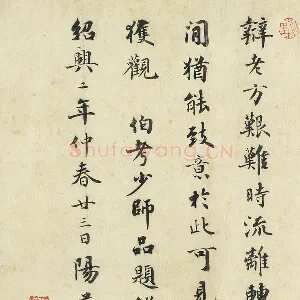 辯老方艱難時流離轉
間猶能致意於此可見
獲觀 伯考少師品題
紹興二年仲春廿三日陽
shufawang.CN